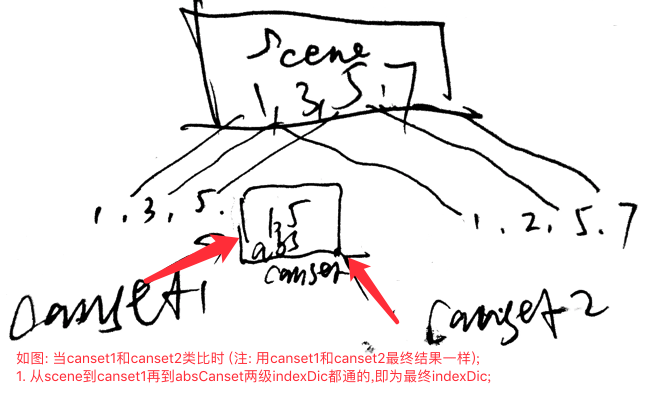 scene
1, 3, 5. 7
1. 3, 5.
1.5
abs
canset
1. 2. 5. 7
canset1
canset2
如图: 当canset1和canset2类比时 (注: 用canset1和canset2最终结果一样);
1. 从scene到canset1再到absCanset两级indexDic都通的,即为最终indexDic;